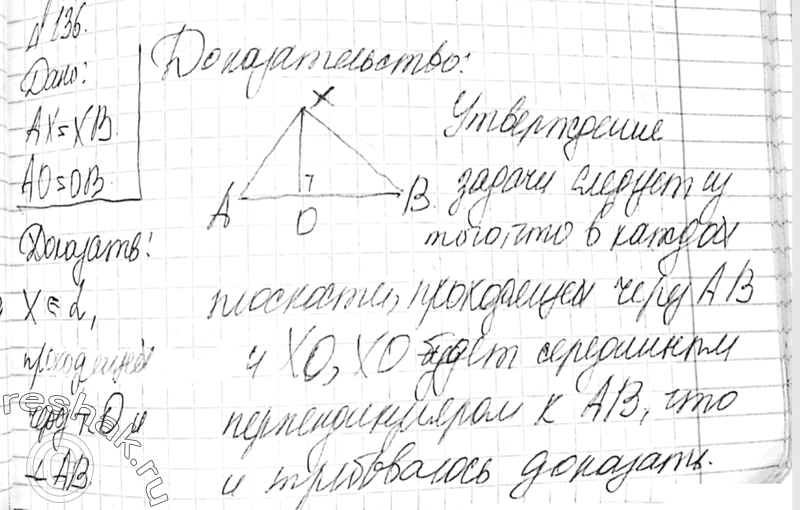 № 136.
Дано:
AX = XB.
AO = OB.
Доказать:
X ∈ α,
проходящей
через т. O и
⊥ AB
Доказательство:
X
A
O
B.
Утверждение
задачи следует из
того, что в каждой
плоскости, проходящей через AB
и XO, XO будет серединным
перпендикуляром к AB, что
и требовалось доказать.
reshak.ru